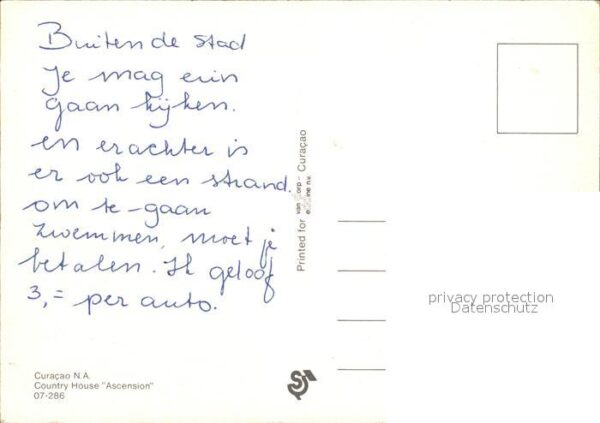 Buiten de stad
Je mag erin
gaan kijken.
en erachter is
er ook een strand.
om te-gaan
zwemmen, moet je
betalen. Ik geloof
3,= per auto.
Curaçao N.A.
Country House "Ascension"
07-286
Printed for van Dorp - Curaçao
privacy protection
Datenschutz